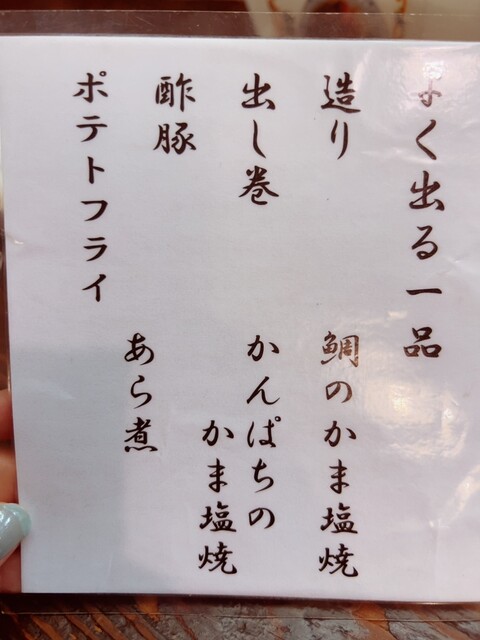 よく出る一品
造り
出し巻
酢豚
ポテトフライ
鯛のかま塩焼
かんぱちの
かま塩焼
あら煮